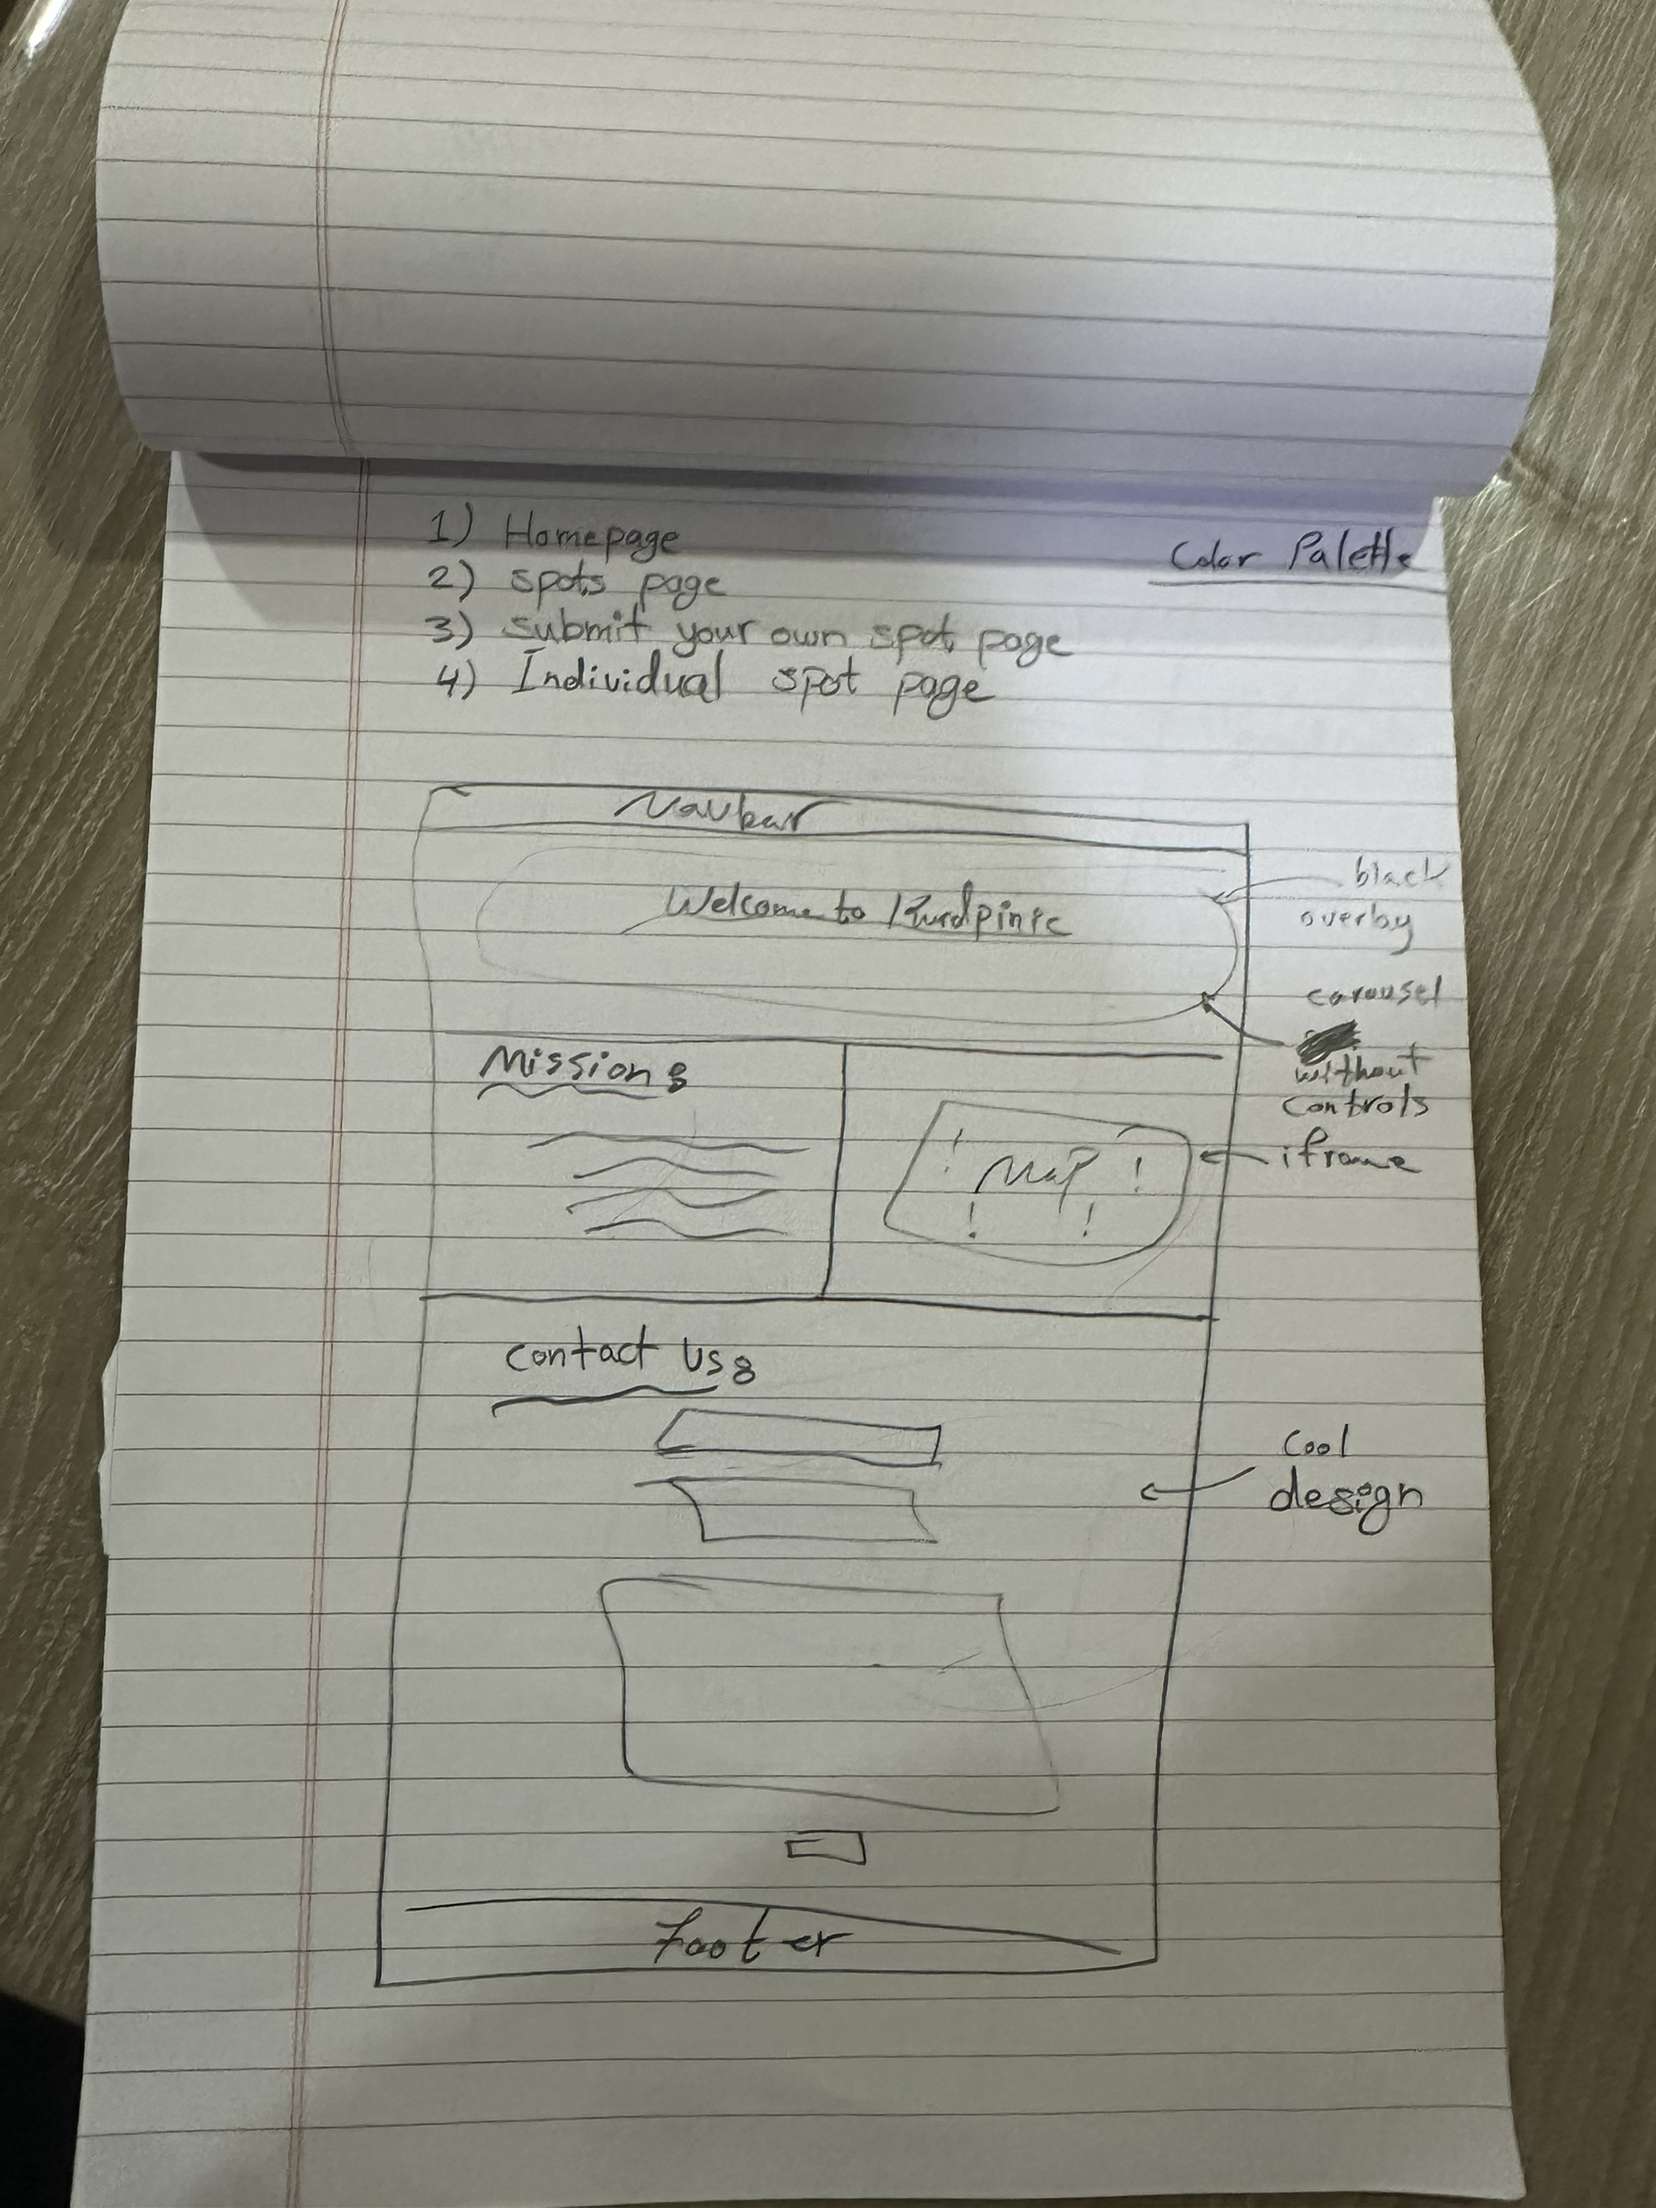 1) Homepage
2) spots page
3) submit your own spot page
4) Individual spot page
Color Palette
Navbar
Welcome to Kurdpinic
black
overlay
carousel
without
controls
Mission:
Map
iframe
Contact Us:
Cool
design
Footer